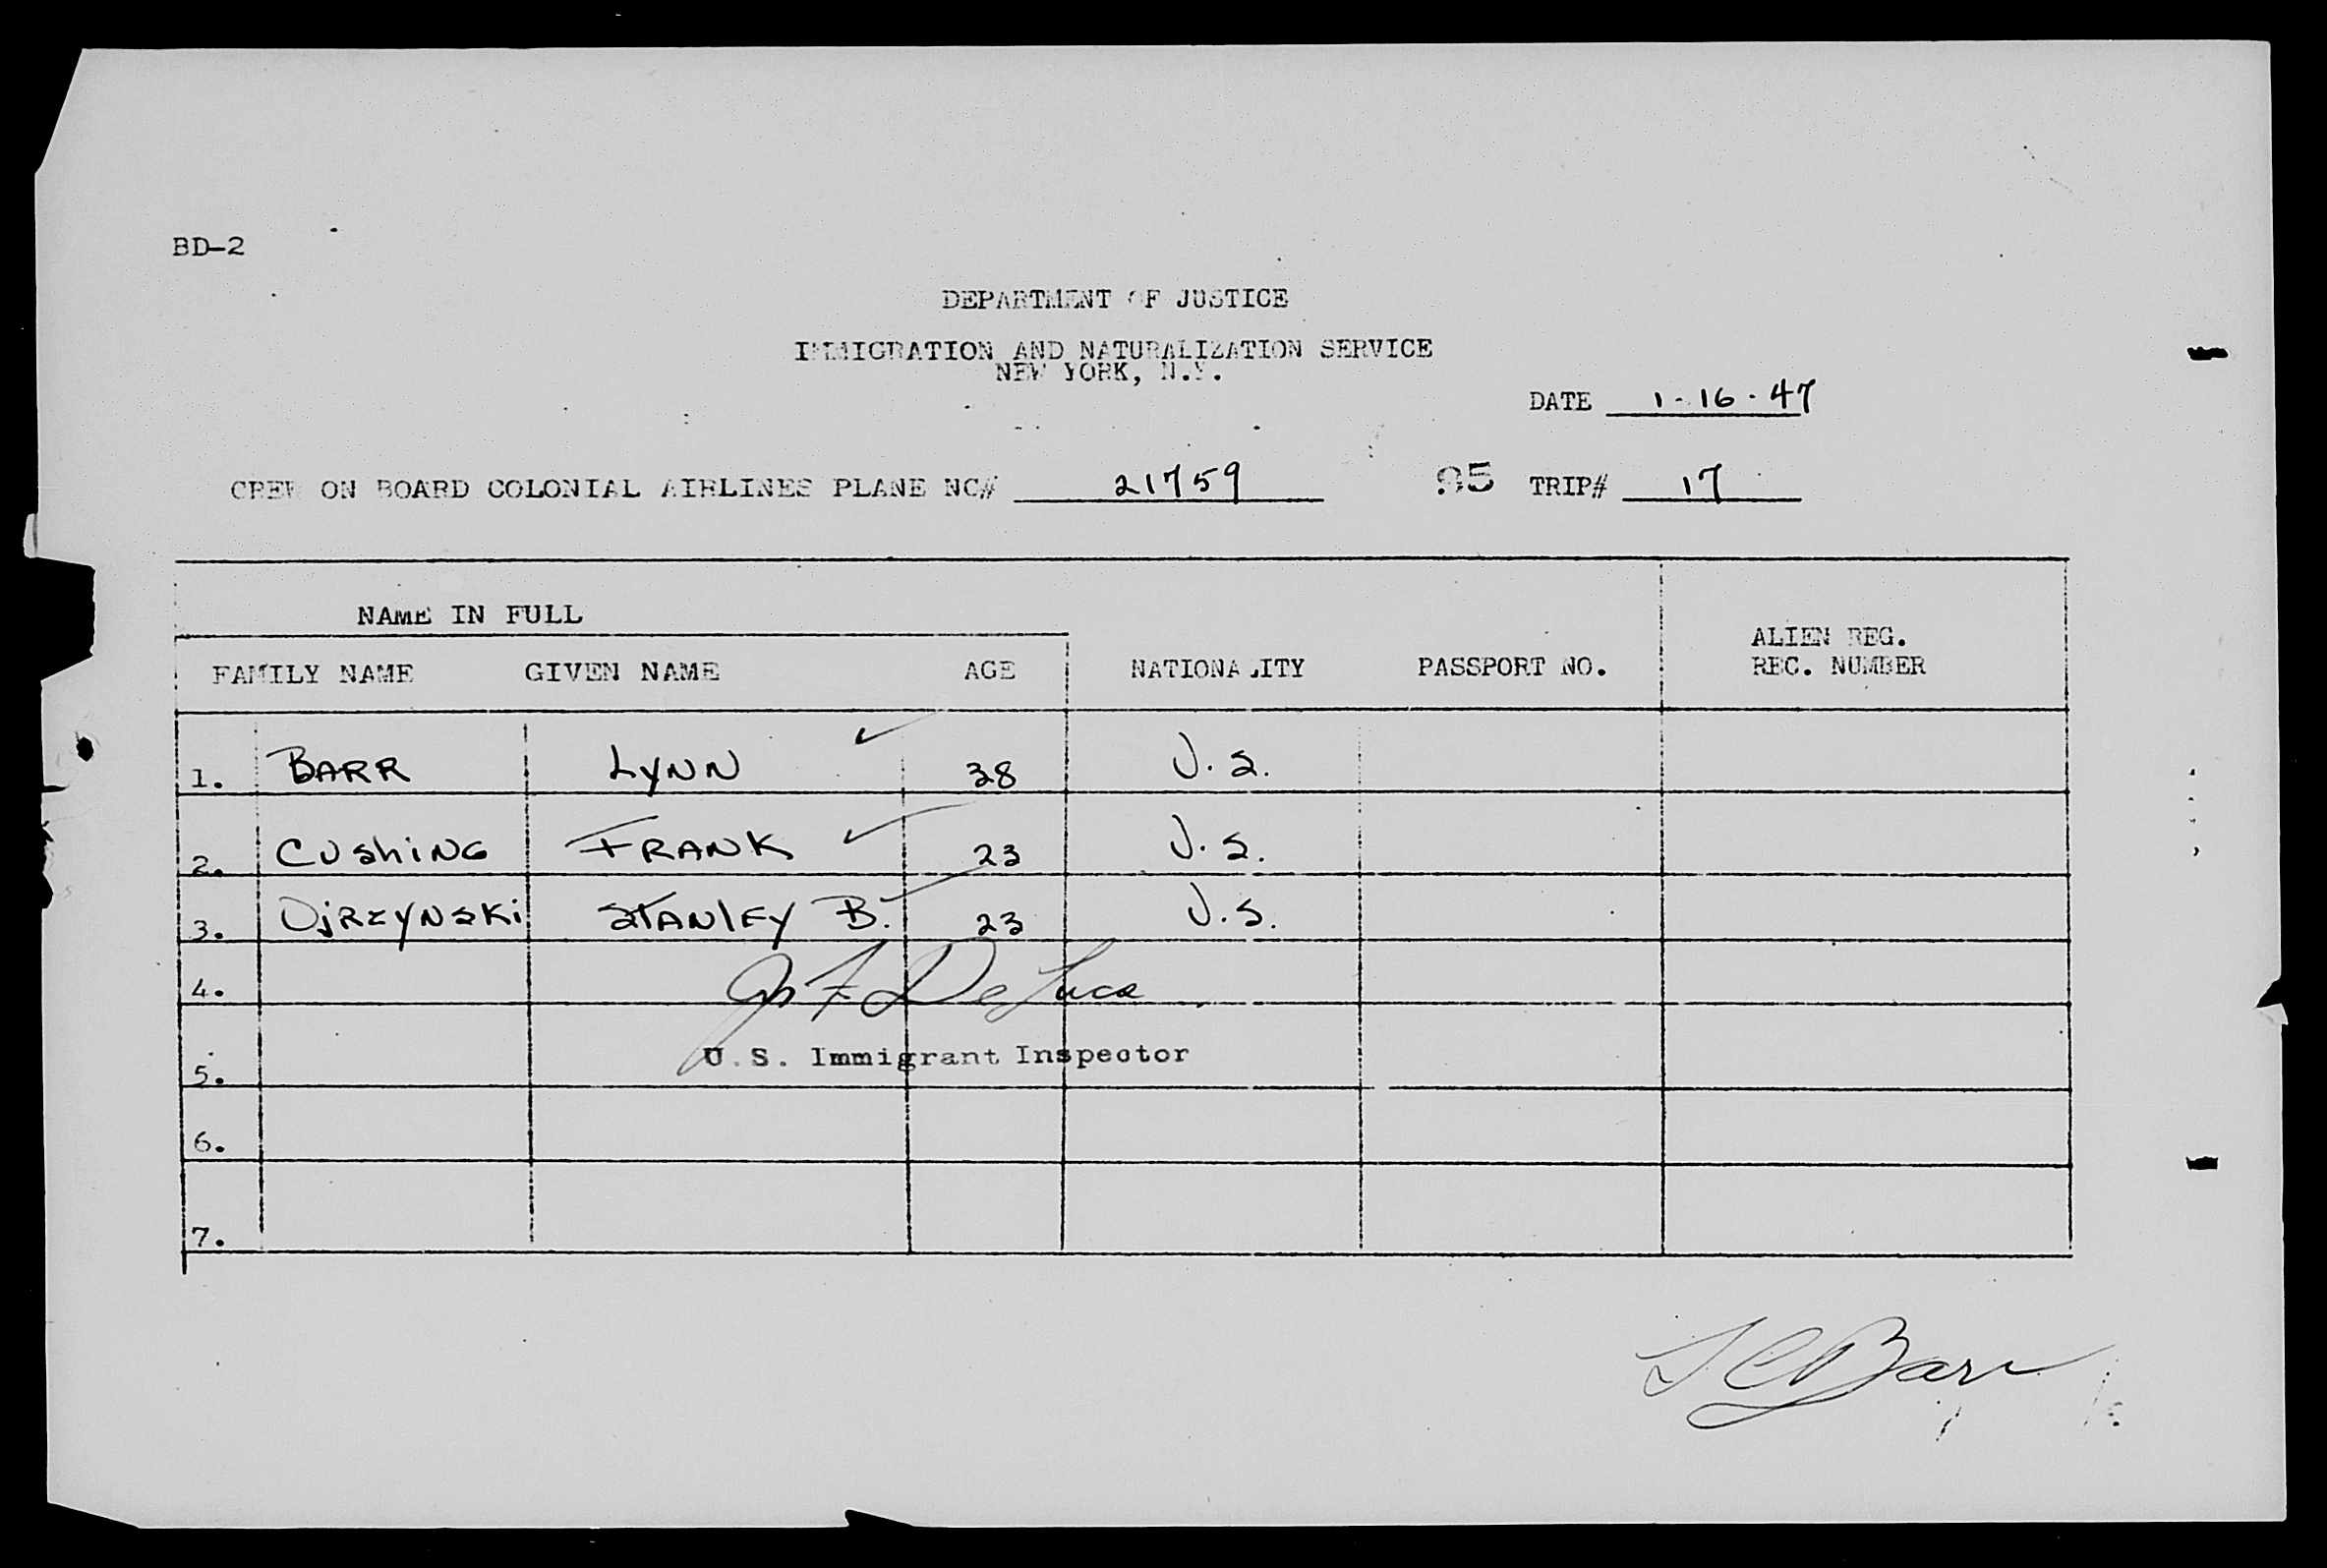 BD-2
DEPARTMENT OF JUSTICE
IMMIGRATION AND NATURALIZATION SERVICE
NEW YORK, N.Y.
DATE 1-16-47
CREW ON BOARD COLONIAL AIRLINES PLANE NC# 21759 95 TRIP# 17
NAME IN FULL
ALIEN REG.
FAMILY NAME GIVEN NAME AGE NATIONALITY PASSPORT NO. REC. NUMBER
1. BARR LYNN 38 U.S.
2. CUShiNG FRANK 23 U.S.
3. OjRZYNSKi STANlEY B. 23 U.S.
4. F De Luca
U.S. Immigrant Inspector
5.
6.
7.
L C Barr